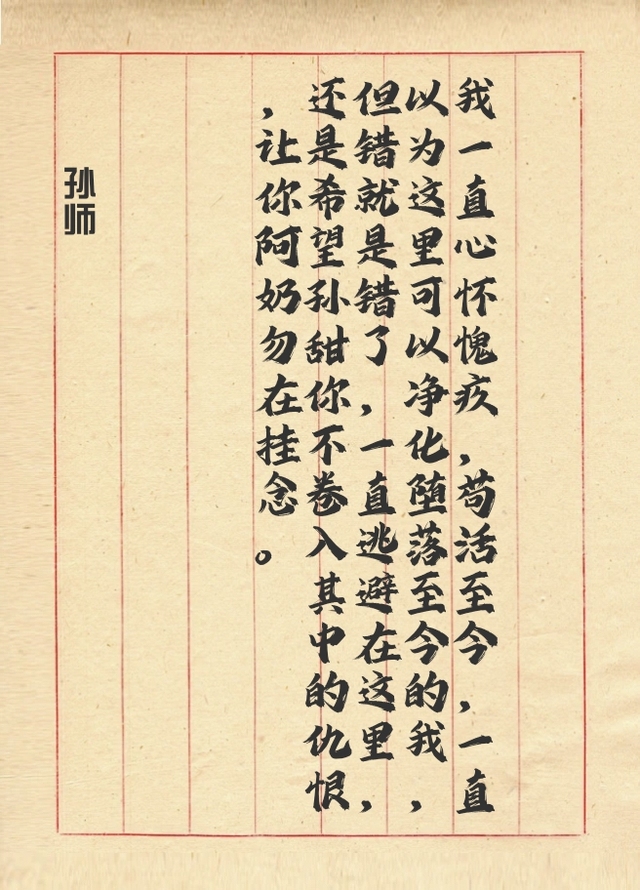 我一直心怀愧疚，苟活至今，一直
以为这里可以净化堕落至今的我，
但错就是错了，一直逃避在这里，
还是希望孙甜你不卷入其中的仇恨
，让你阿奶勿在挂念。
孙师